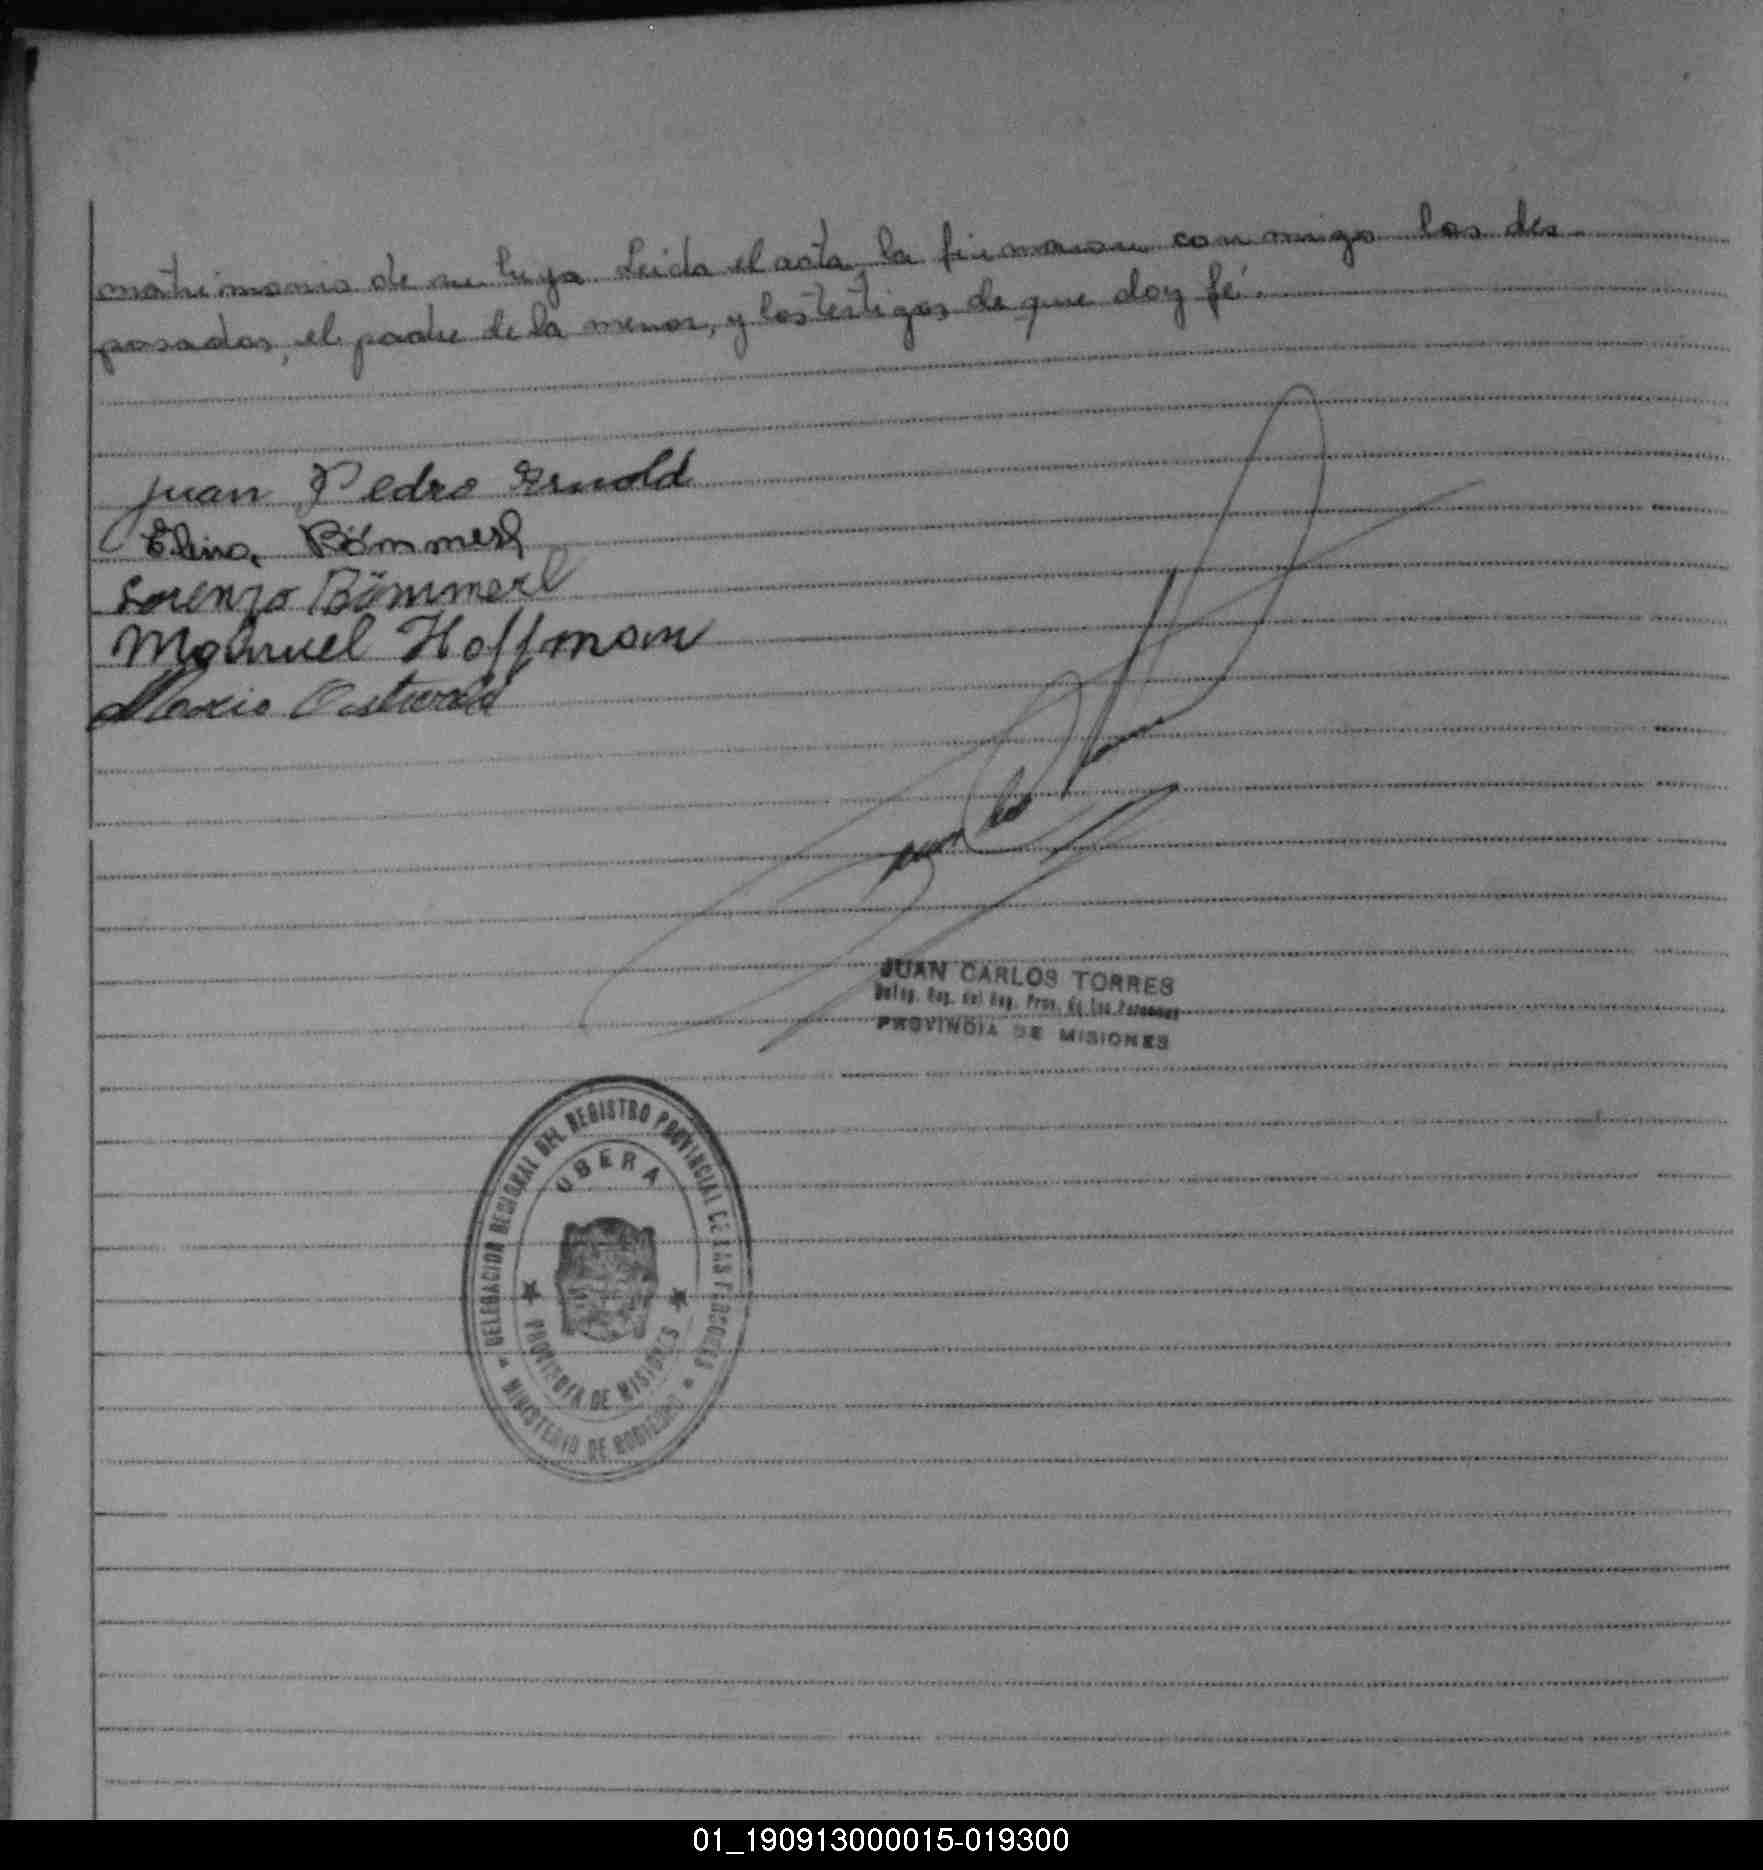 matrimonio de su hija Leida el acta la firmaron conmigo los des-
posados, el padre de la menor, y los testigos de que doy fé.
Juan Pedro Arnold
Elina Bömmerl
Lorenzo Bömmerl
Mahnuel Hoffmann
Mario
JUAN CARLOS TORRES
Deleg. Reg. del Reg. Prov. de Las Personas
PROVINCIA DE MISIONES
DELEGACION REGIONAL DEL REGISTRO PROVINCIAL DE LAS PERSONES
OBERA
PROVINCIA DE MISIONES
MINISTERIO DE GOBIERNO
01_190913000015-019300